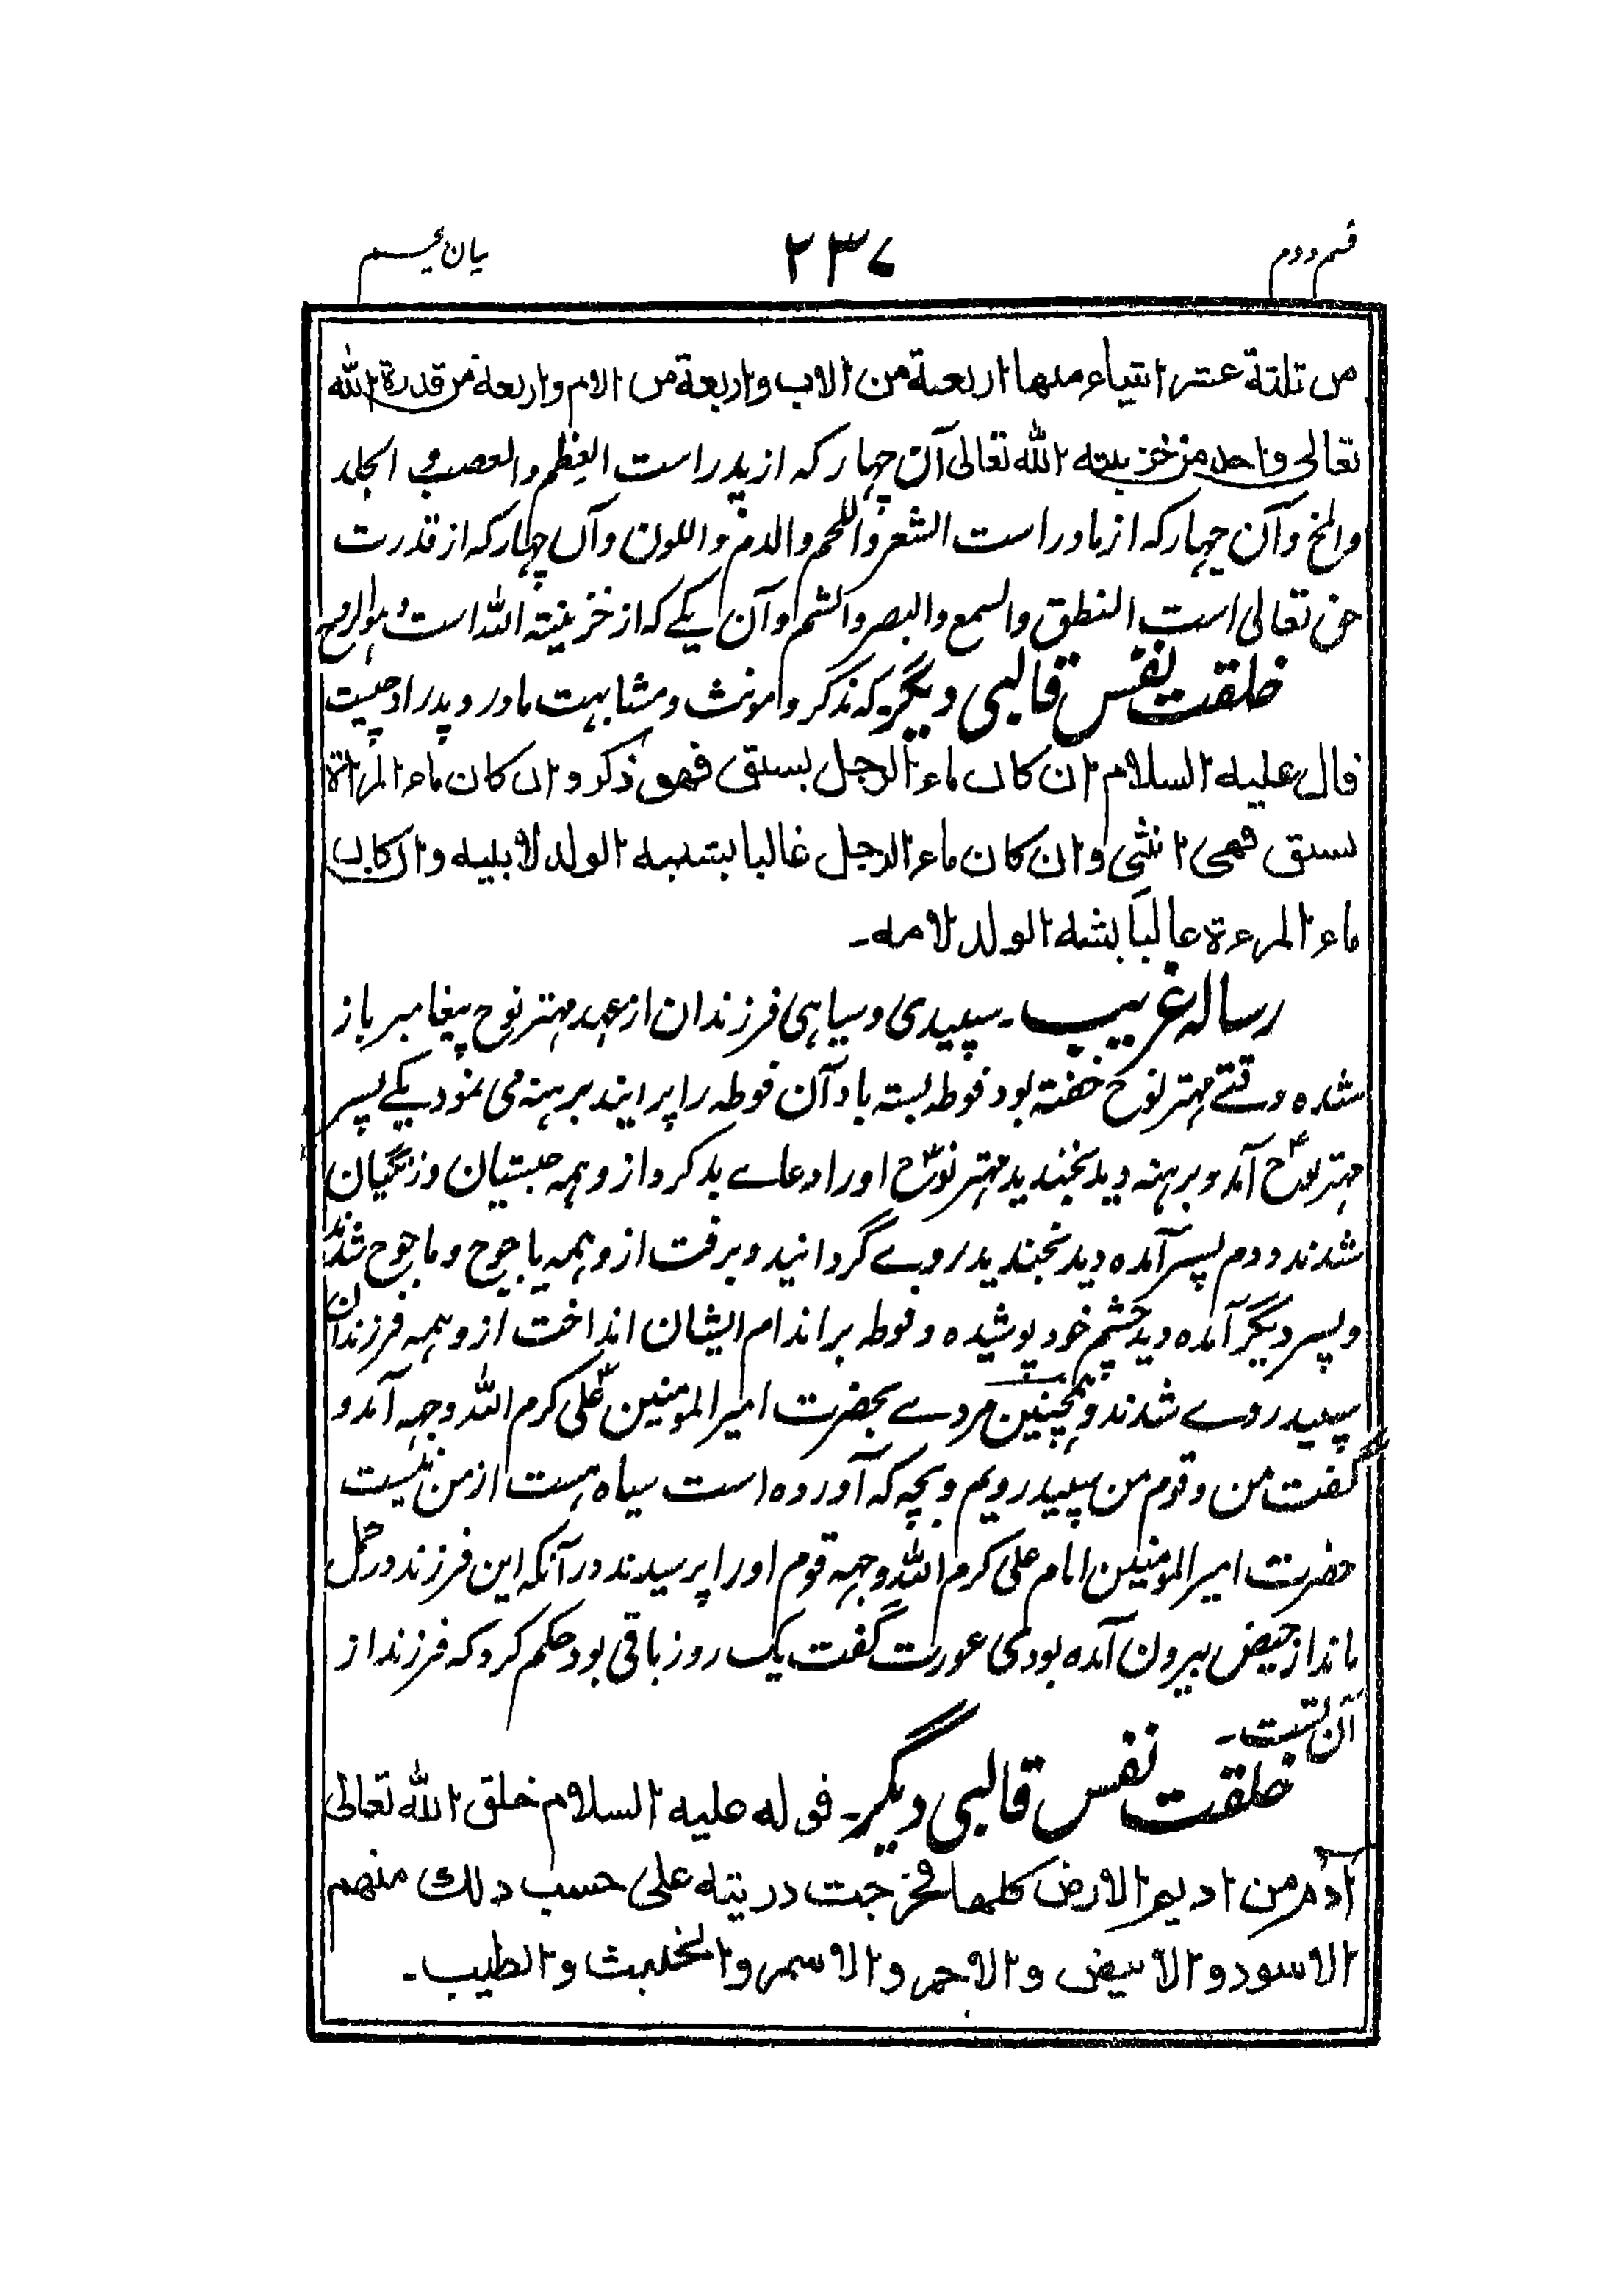 قسم دوم ۲۳۷ بیان جسم
من ثلثة عشر اشیاء منها اربعة من الاب واربعة من الام واربعة من قدرة الله
تعالی وواحد من خزینة الله تعالی آن چهار که از پدر است العظم والعصب و الجلد
والمخ وآن چهار که از مادر است الشعر واللحم والدم واللون وآں چهار که از قدرت
حق تعالی است النطق والسمع والبصر والشم وآن یکے که از خزینته الله است هو الروح
خلقت نفس قالبی دیگر که مذکر و مونث و مشابهت مادر و پدر از چیست
قال علیه السلام ان کان ماء الرجل یسبق فهو ذکر وان کان ماء المراة
یسبق فهی انثی وان کان ماء الرجل غالبا یشبه الولد لابیه وان کان
ماء المرءة غالباً یشبه الولد لامه۔
رساله غریب۔ سپیدی وسیاهی فرزندان از عهد مهتر نوح پیغامبر باز
شده وقتے مهتر نوح خفته بود فوطه بسته باد آن فوطه را پرانید برهنه می نمود یکے پسر
مهتر نوحؑ آمد و برهنه دید بخندید مهتر نوحؑ اورا دعاے بد کرد از وهمه حبشیان و زنگیان
شدند ودوم پسر آمده دید بخندید روے گردانید و برفت از وهمه یاجوج وماجوج شدند
وپسر دیگر آمده دید چشم خود پوشیده و فوطه بر اندام ایشان انداخت از وهمه فرزندان
سپید روے شدند وهمچنین مردے بحضرت امیر المومنین علی کرم الله وجهه آمد و
گفت من و قوم من سپید رویم و بچه که آورده است سیاه هست از من نیست
حضرت امیر المومنین امام علی کرم الله وجهه قوم اورا پرسیدند در آنکه این فرزند در حمل
ماند از حیض بیرون آمده بودی عورت گفت یک روز باقی بود حکم کرد که فرزند از
آن تست۔
خلقت نفس قالبی دیگر۔ قوله علیه السلام خلق الله تعالی
آدم من ادیم الارض کلها فخرجت ذریته علی حسب ذلك منهم
الاسود والابیض والاحمر والاسمر والخبیث والطیب۔